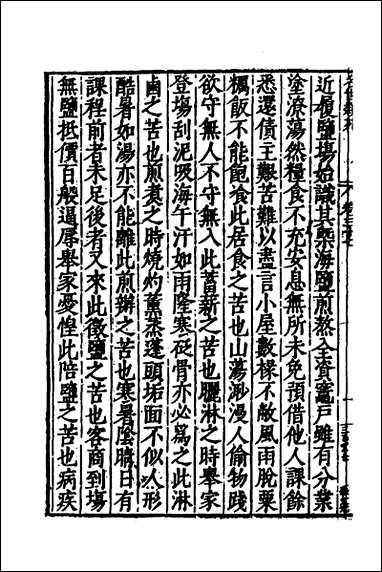 近履鹽塲始識其槩海鹽煎熬全資竈戸雖有分業
塗潦蕩然糧食不充安息無所未免預借他人課餘
悉還債主艱苦難以盡言小屋數椽不敵風雨脫粟
糲飯不能飽食此居食之苦也山蕩渺漫人偷物踐
欲守無人不守無入此蓄薪之苦也曬淋之時舉家
登塲刮泥吸海午汗如雨隆寒砭骨亦必為之此淋
鹵之苦也煎煑之時燒灼薰蒸蓬頭垢面不似人形
酷暑如湯亦不能離此煎辦之苦也寒暑陰晴日有
課程前者未足後者又來此徵鹽之苦也客商到塲
無鹽抵價百般逼辱舉家憂惶此陪鹽之苦也病疾